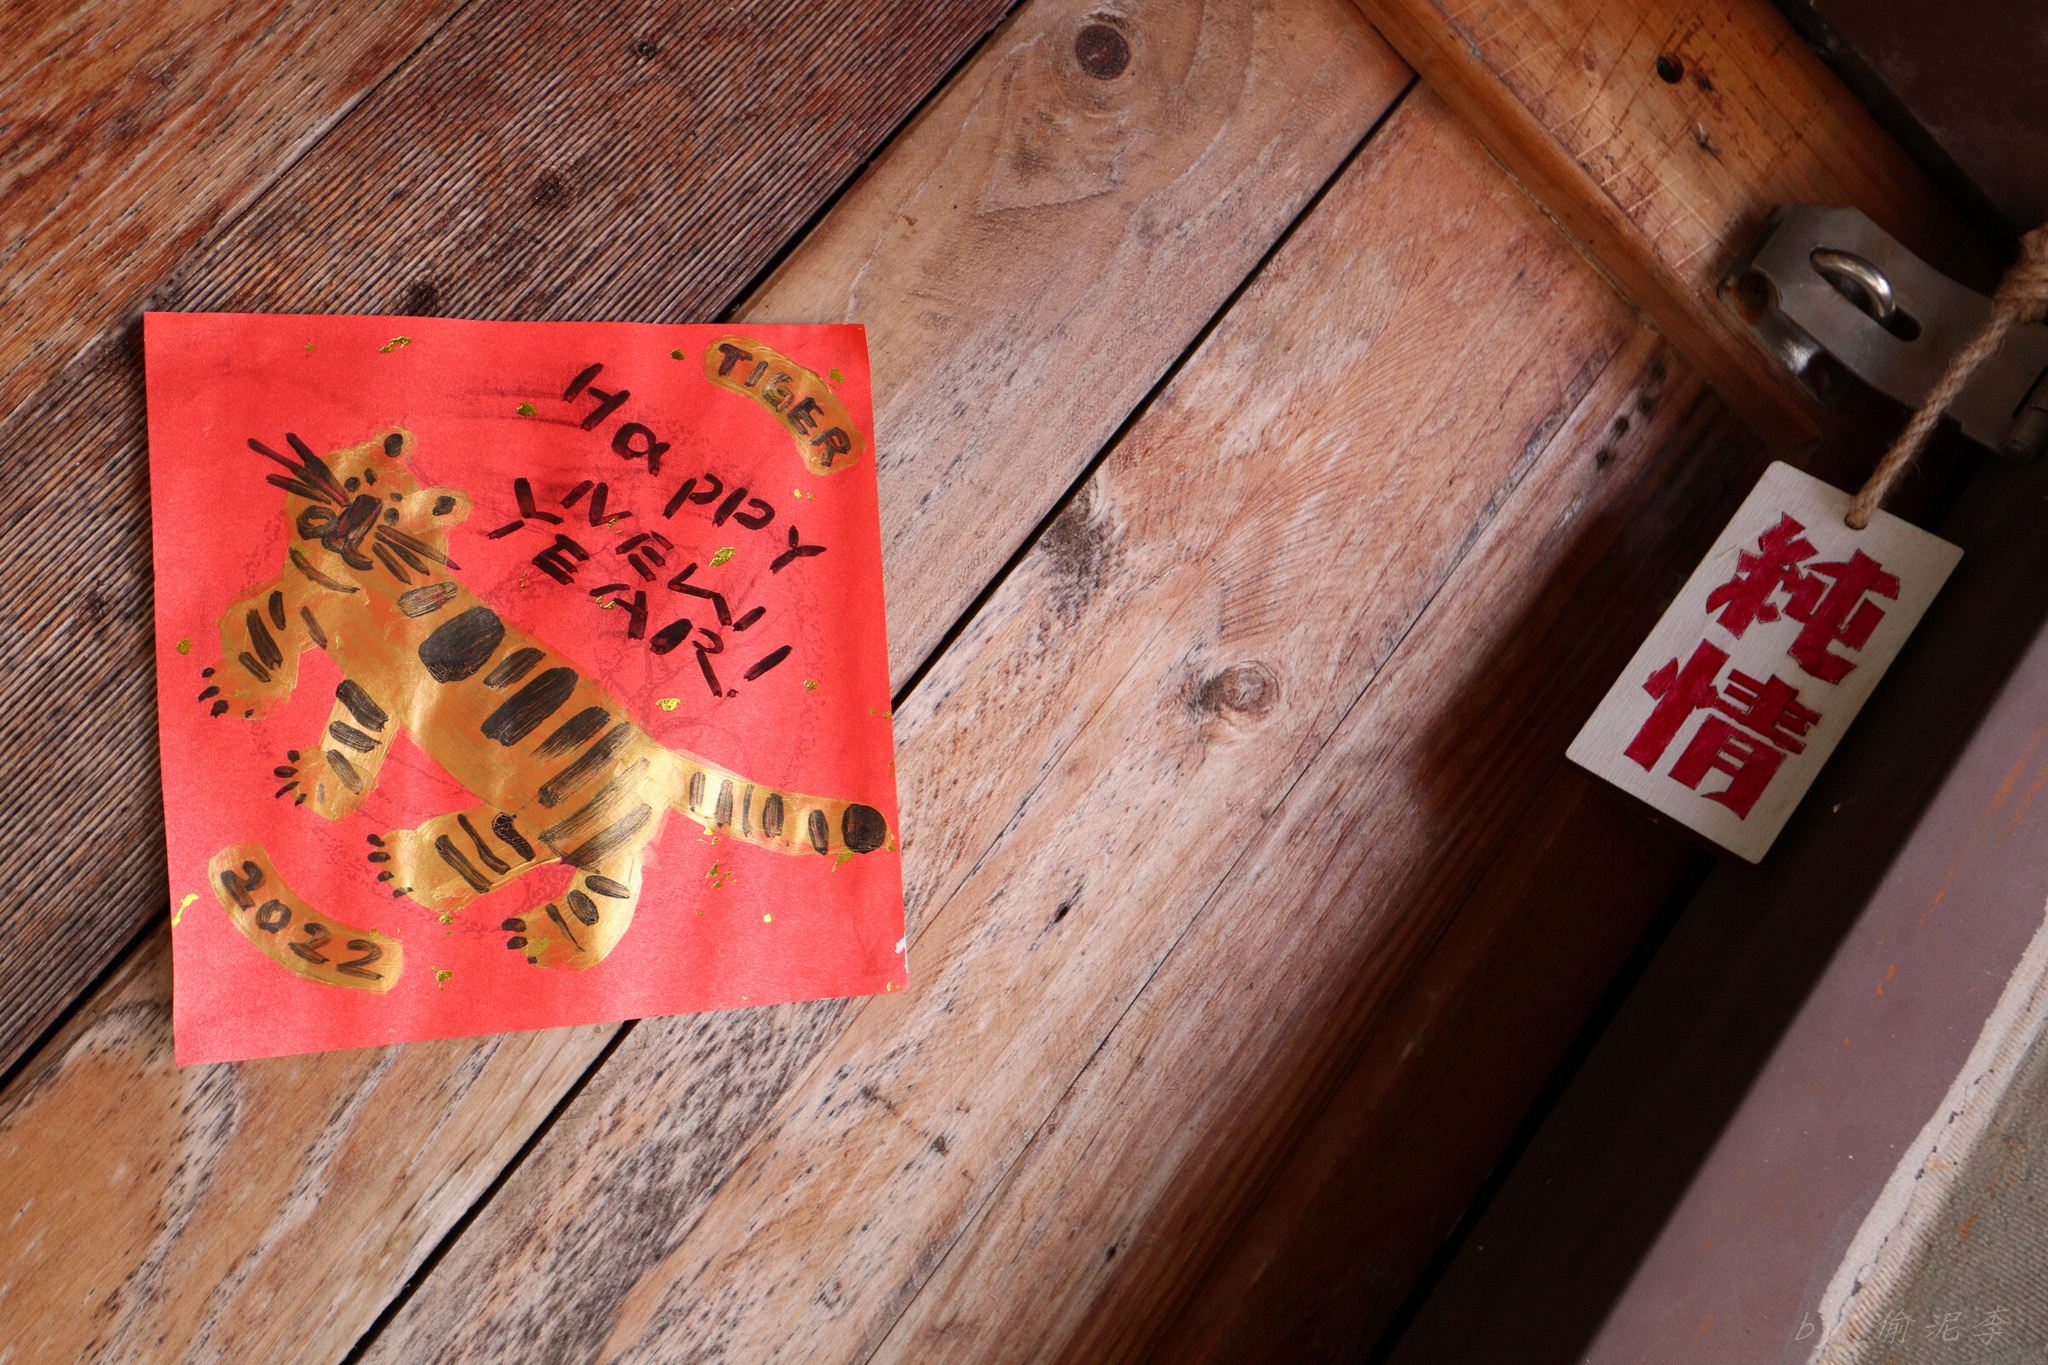 TIGER
Happy
NEW
YEAR!
2022
純情
by 偷泥李